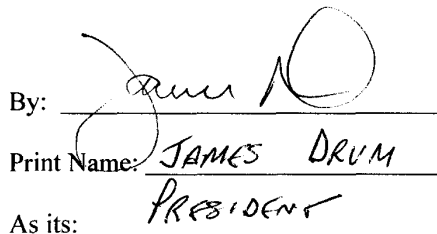 By: James D
Print Name: JAMES DRUM
As its: PRESIDENT